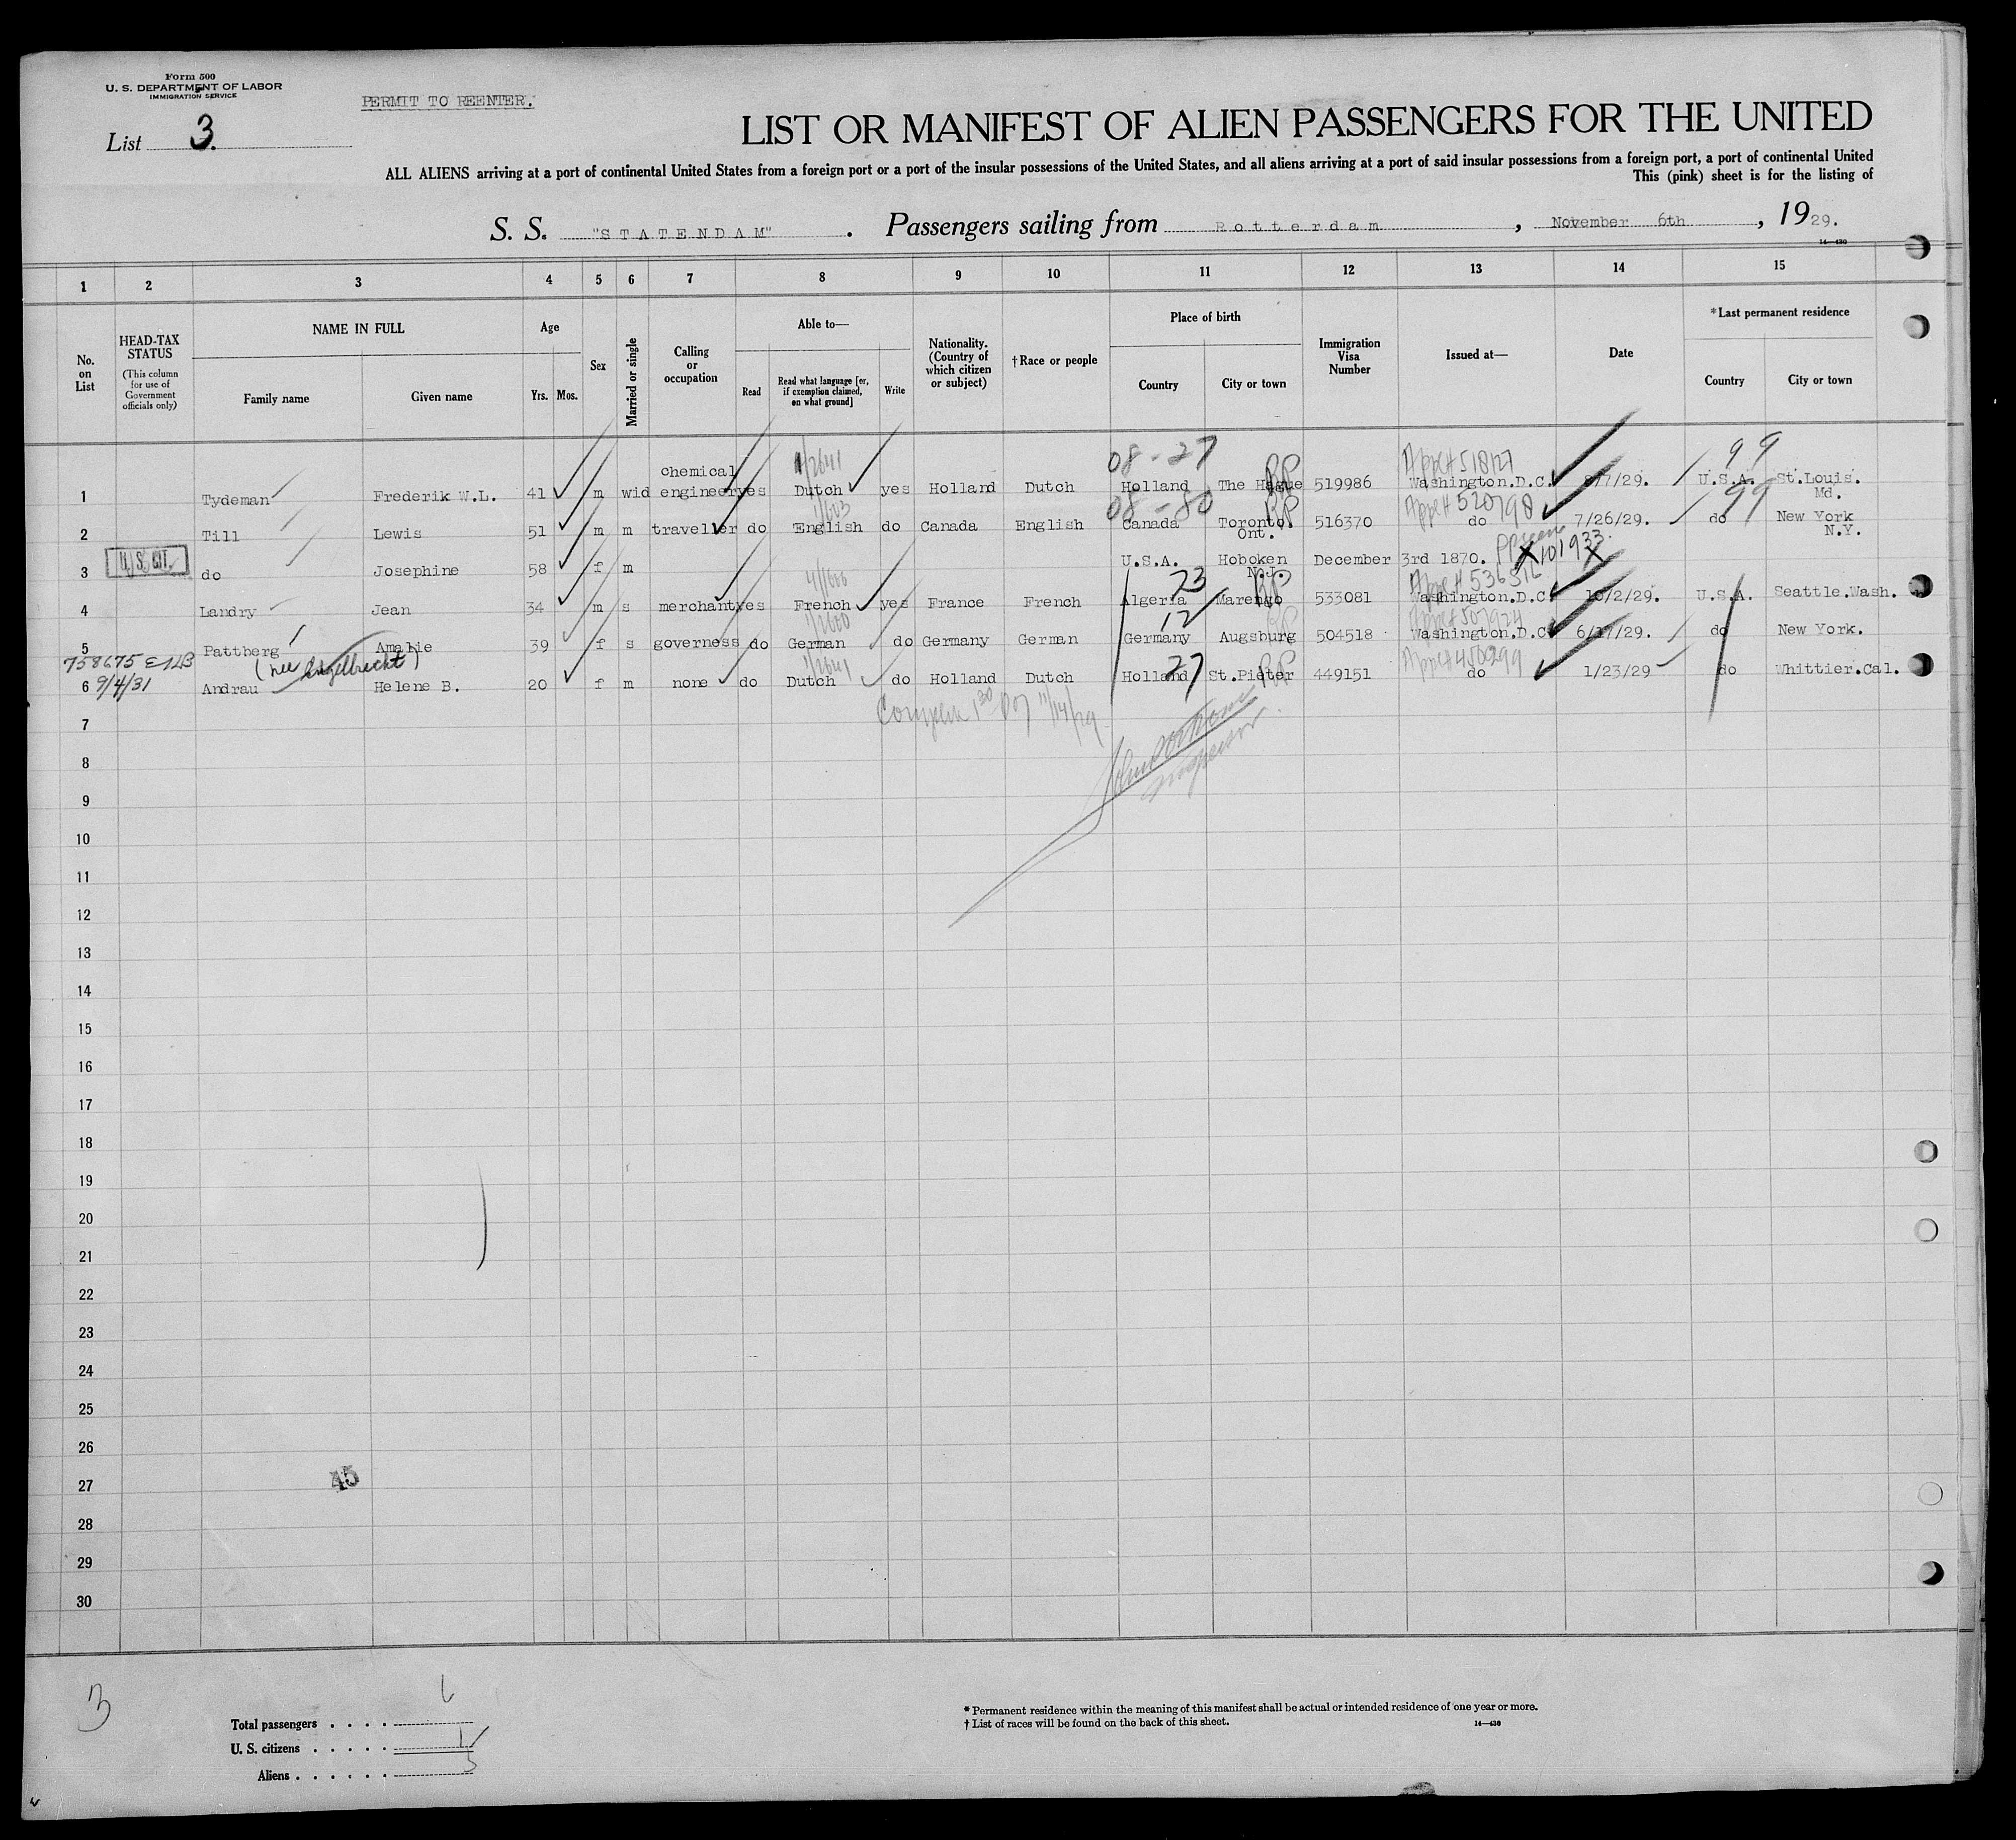 Form 500
U. S. DEPARTMENT OF LABOR
IMMIGRATION SERVICE
PERMIT TO REENTER.
List 3.
LIST OR MANIFEST OF ALIEN PASSENGERS FOR THE UNITED
ALL ALIENS arriving at a port of continental United States from a foreign port or a port of the insular possessions of the United States, and all aliens arriving at a port of said insular possessions from a foreign port, a port of continental United
This (pink) sheet is for the listing of
S. S. "STATENDAM". Passengers sailing from Rotterdam, November 6th, 1929.
14—430
1 2 3 4 5 6 7 8 9 10 11 12 13 14 15
No. on List
HEAD-TAX STATUS
(This column for use of Government officials only)
NAME IN FULL
Family name Given name
Age
Yrs. Mos.
Sex
Married or single
Calling or occupation
Able to—
Read
Read what language [or, if exemption claimed, on what ground]
Write
Nationality. (Country of which citizen or subject)
†Race or people
Place of birth
Country City or town
Immigration Visa Number
Issued at—
Date
*Last permanent residence
Country City or town
08-27 99
1 Tydeman Frederik W.L. 41 m wid chemical engineer yes Dutch yes Holland Dutch Holland The Hague 519986 Washington.D.C. 8/7/29. U.S.A. St.Louis. Md.
08-80 520798 99
2 Till Lewis 51 m m traveller do English do Canada English Canada Toronto Ont. 516370 do 7/26/29. do New York N.Y.
U. S. CIT.
3 do Josephine 58 f m U.S.A. Hoboken N.J. December 3rd 1870. 101933.
23
4 Landry Jean 34 m s merchant yes French yes France French Algeria Marengo 533081 Washington.D.C. 10/2/29. U.S.A. Seattle.Wash.
12
5 Pattberg Amalie 39 f s governess do German do Germany German Germany Augsburg 504518 Washington.D.C. 6/17/29. do New York.
758675
(nee Engelbrecht)
9/4/31
6 Andrau Helene B. 20 f m none do Dutch do Holland Dutch Holland 27 St.Pieter 449151 do 1/23/29 do Whittier.Cal.
11/14/29
Inspector.
7
8
9
10
11
12
13
14
15
16
17
18
19
20
21
22
23
24
25
26
27
28
29
30
45
3
Total passengers . . . . 6
U. S. citizens . . . . . 1
Aliens . . . . . . 5
* Permanent residence within the meaning of this manifest shall be actual or intended residence of one year or more.
† List of races will be found on the back of this sheet.
14—430